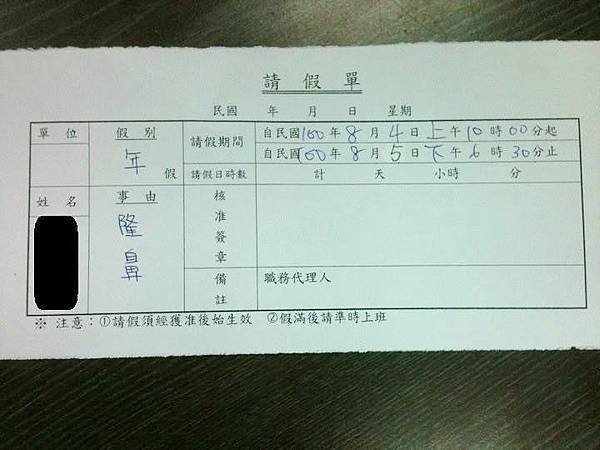 請假單
民國 年 月 日 星期
單位 假別 請假期間 自民國100年8月4日上午10時00分起
自民國100年8月5日下午6時30分止
年假 請假日時數 計 天 小時 分
姓名 事由 核准簽章
隆鼻
備註 職務代理人
※ 注意：①請假須經獲准後始生效 ②假滿後請準時上班